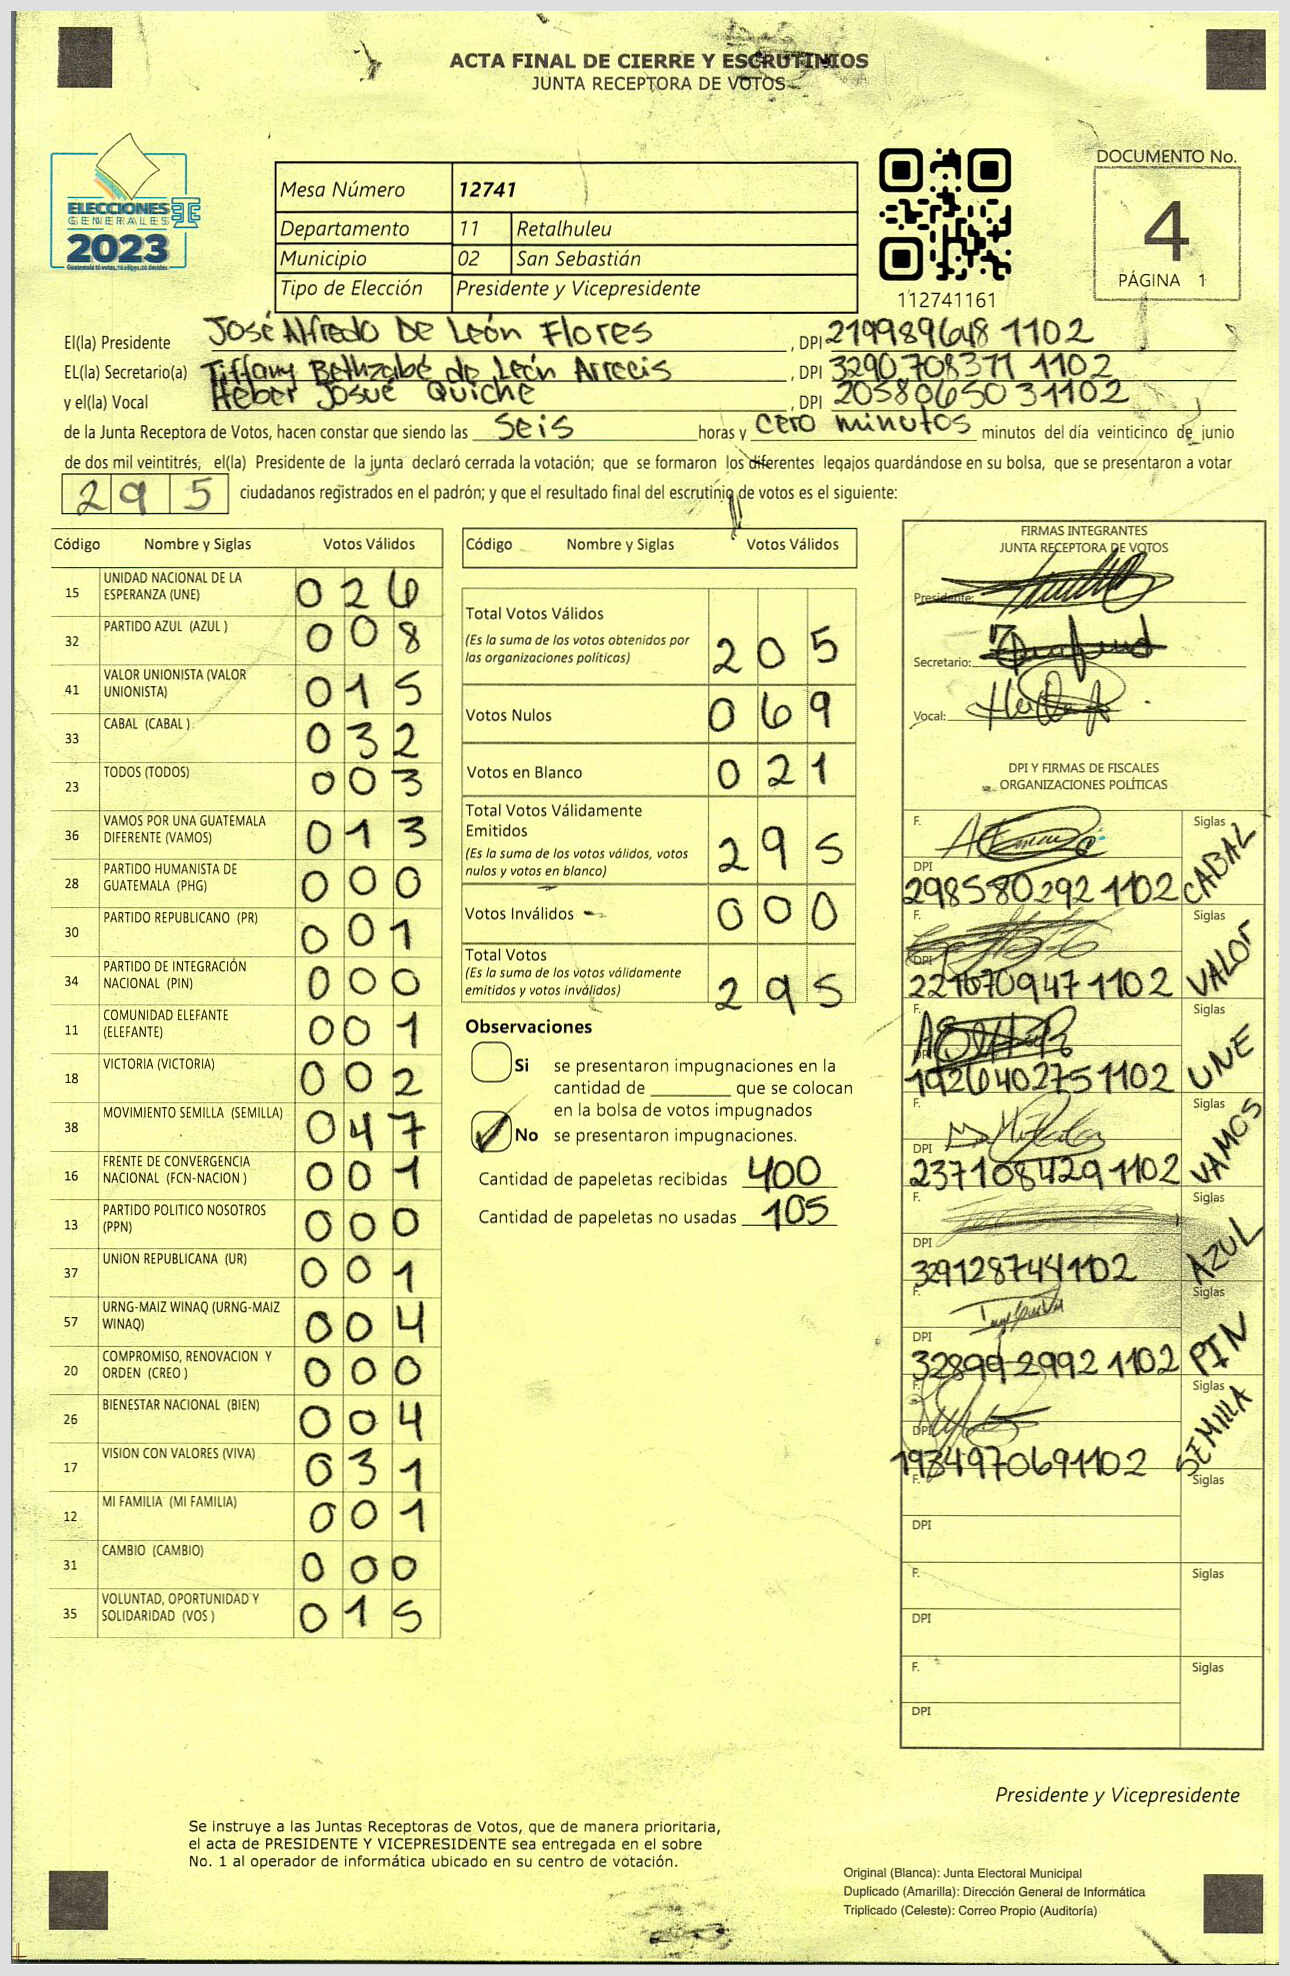 ACTA FINAL DE CIERRE Y ESCRUTINIOS
JUNTA RECEPTORA DE VOTOS
ELECCIONES
GENERALES
2023
Mesa Número 12741
Departamento 11 Retalhuleu
Municipio 02 San Sebastián
Tipo de Elección Presidente y Vicepresidente
112741161
DOCUMENTO No.
4
PÁGINA 1
El(la) Presidente José Alfredo De León Flores, DPI 219989648 1102
EL(la) Secretario(a) Tiffany Bethzabé de León Arrecis, DPI 3290708371 1102
y el(la) Vocal Heber Josué Quiche, DPI 205806503 1102
de la Junta Receptora de Votos, hacen constar que siendo las seis horas y cero minutos minutos del día veinticinco de junio
de dos mil veintitrés, el(la) Presidente de la junta declaró cerrada la votación; que se formaron los diferentes legajos guardándose en su bolsa, que se presentaron a votar
295 ciudadanos registrados en el padrón; y que el resultado final del escrutinio de votos es el siguiente:
Código Nombre y Siglas Votos Válidos
15 UNIDAD NACIONAL DE LA ESPERANZA (UNE) 026
32 PARTIDO AZUL (AZUL ) 008
41 VALOR UNIONISTA (VALOR UNIONISTA) 015
33 CABAL (CABAL ) 032
23 TODOS (TODOS) 003
36 VAMOS POR UNA GUATEMALA DIFERENTE (VAMOS) 013
28 PARTIDO HUMANISTA DE GUATEMALA (PHG) 000
30 PARTIDO REPUBLICANO (PR) 001
34 PARTIDO DE INTEGRACIÓN NACIONAL (PIN) 000
11 COMUNIDAD ELEFANTE (ELEFANTE) 001
18 VICTORIA (VICTORIA) 002
38 MOVIMIENTO SEMILLA (SEMILLA) 047
16 FRENTE DE CONVERGENCIA NACIONAL (FCN-NACION ) 001
13 PARTIDO POLITICO NOSOTROS (PPN) 000
37 UNION REPUBLICANA (UR) 001
57 URNG-MAIZ WINAQ (URNG-MAIZ WINAQ) 004
20 COMPROMISO, RENOVACION Y ORDEN (CREO ) 000
26 BIENESTAR NACIONAL (BIEN) 004
17 VISION CON VALORES (VIVA) 031
12 MI FAMILIA (MI FAMILIA) 001
31 CAMBIO (CAMBIO) 000
35 VOLUNTAD, OPORTUNIDAD Y SOLIDARIDAD (VOS ) 015
Código Nombre y Siglas Votos Válidos
Total Votos Válidos 205
(Es la suma de los votos obtenidos por
las organizaciones políticas)
Votos Nulos 069
Votos en Blanco 021
Total Votos Válidamente
Emitidos 295
(Es la suma de los votos válidos, votos
nulos y votos en blanco)
Votos Inválidos 000
Total Votos 295
(Es la suma de los votos válidamente
emitidos y votos inválidos)
Observaciones
Si se presentaron impugnaciones en la
cantidad de ________ que se colocan
en la bolsa de votos impugnados
No se presentaron impugnaciones.
Cantidad de papeletas recibidas 400
Cantidad de papeletas no usadas 105
FIRMAS INTEGRANTES
JUNTA RECEPTORA DE VOTOS
Presidente:
Secretario:
Vocal:
DPI Y FIRMAS DE FISCALES
ORGANIZACIONES POLÍTICAS
F. Siglas CABAL
DPI 298580292 1102
F. Siglas VALOR
DPI 221670947 1102
F. Siglas UNE
DPI 1926402751102
F. Siglas VAMOS
DPI 2371084291102
F. Siglas AZUL
DPI 3291287441102
F. Siglas PIN
DPI 328992992 1102
F. Siglas SEMILLA
DPI 1934970691102
F. Siglas
DPI
F. Siglas
DPI
F. Siglas
DPI
Presidente y Vicepresidente
Se instruye a las Juntas Receptoras de Votos, que de manera prioritaria,
el acta de PRESIDENTE Y VICEPRESIDENTE sea entregada en el sobre
No. 1 al operador de informática ubicado en su centro de votación.
Original (Blanca): Junta Electoral Municipal
Duplicado (Amarilla): Dirección General de Informática
Triplicado (Celeste): Correo Propio (Auditoría)